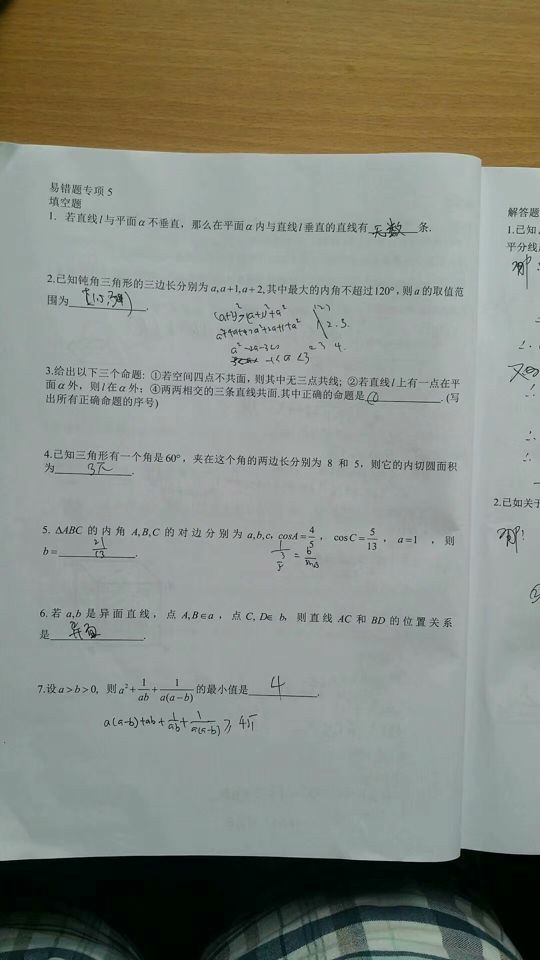 易错题专项 5
填空题
1. 若直线 l 与平面 α 不垂直，那么在平面 α 内与直线 l 垂直的直线有 无数 条.
2.已知钝角三角形的三边长分别为 a, a+1, a+2,其中最大的内角不超过120°,则 a 的取值范
围为
3.给出以下三个命题: ①若空间四点不共面，则其中无三点共线; ②若直线 l 上有一点在平
面 α 外，则 l 在 α 外; ④两两相交的三条直线共面.其中正确的命题是 ① .(写
出所有正确命题的序号)
4.已知三角形有一个角是60°，夹在这个角的两边长分别为 8 和 5，则它的内切圆面积
为 3π .
5. ΔABC 的内角 A,B,C 的对边分别为 a,b,c, cosA=4/5, cosC=5/13, a=1 ，则
b= 21/13 .
6.若 a,b 是异面直线，点 A,B∈a ，点 C, D∈ b, 则直线 AC 和 BD 的位置关系
是 异面 .
7.设 a>b>0, 则 a²+1/ab+1/a(a-b) 的最小值是 4 .
a(a-b)+ab+1/ab+1/a(a-b) ≥
解答题
1.已知
平分线
2.已知关于